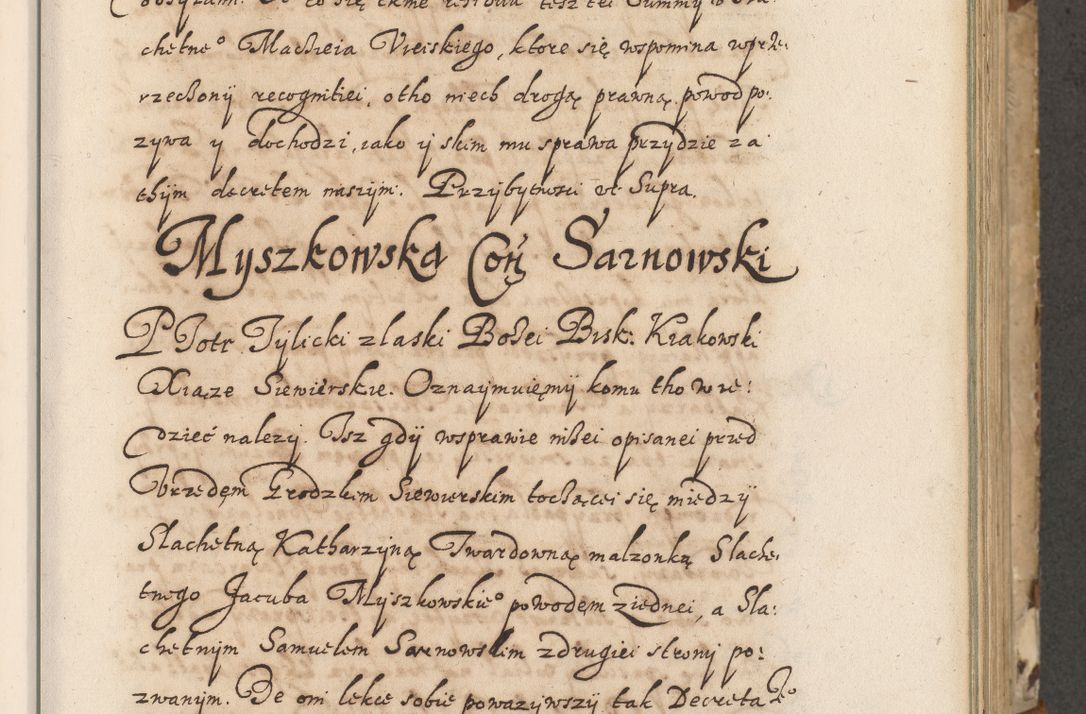 chetne° Macheia Vieiskiego, ktore się wspomina wprze:
rzechonÿ recognitiei, otho niech drogą prawną powod po:
zywa y dochodzi, iako ÿ skim mu sprawa przydzie za
thÿm decretem naszÿm. Przÿbÿtwsci vt Supra.
Myszkowska Coñ Sarnowski
PIotr Tylicki z laski Bozei Bisk: Krakowski
Xiąze Siewierskie. Oznaymuięmÿ komu tho wie:
dzieć nalezÿ. Isz gdÿ wsprawie nizei opisanei przed
Vrzędęm Grodzkim Siewierskim tocżącei się miedzÿ
Slachetną Katharzÿną Twardowną malzonką Slache:
tnego Jacuba Myszkowskie° powodęm ziednei, a Sla:
chetnÿm Samuelem Sarnowskim zdrugiei stronÿ po:
zwanÿm. Ze oni lekce sobie powazÿwszÿ tak Decreta